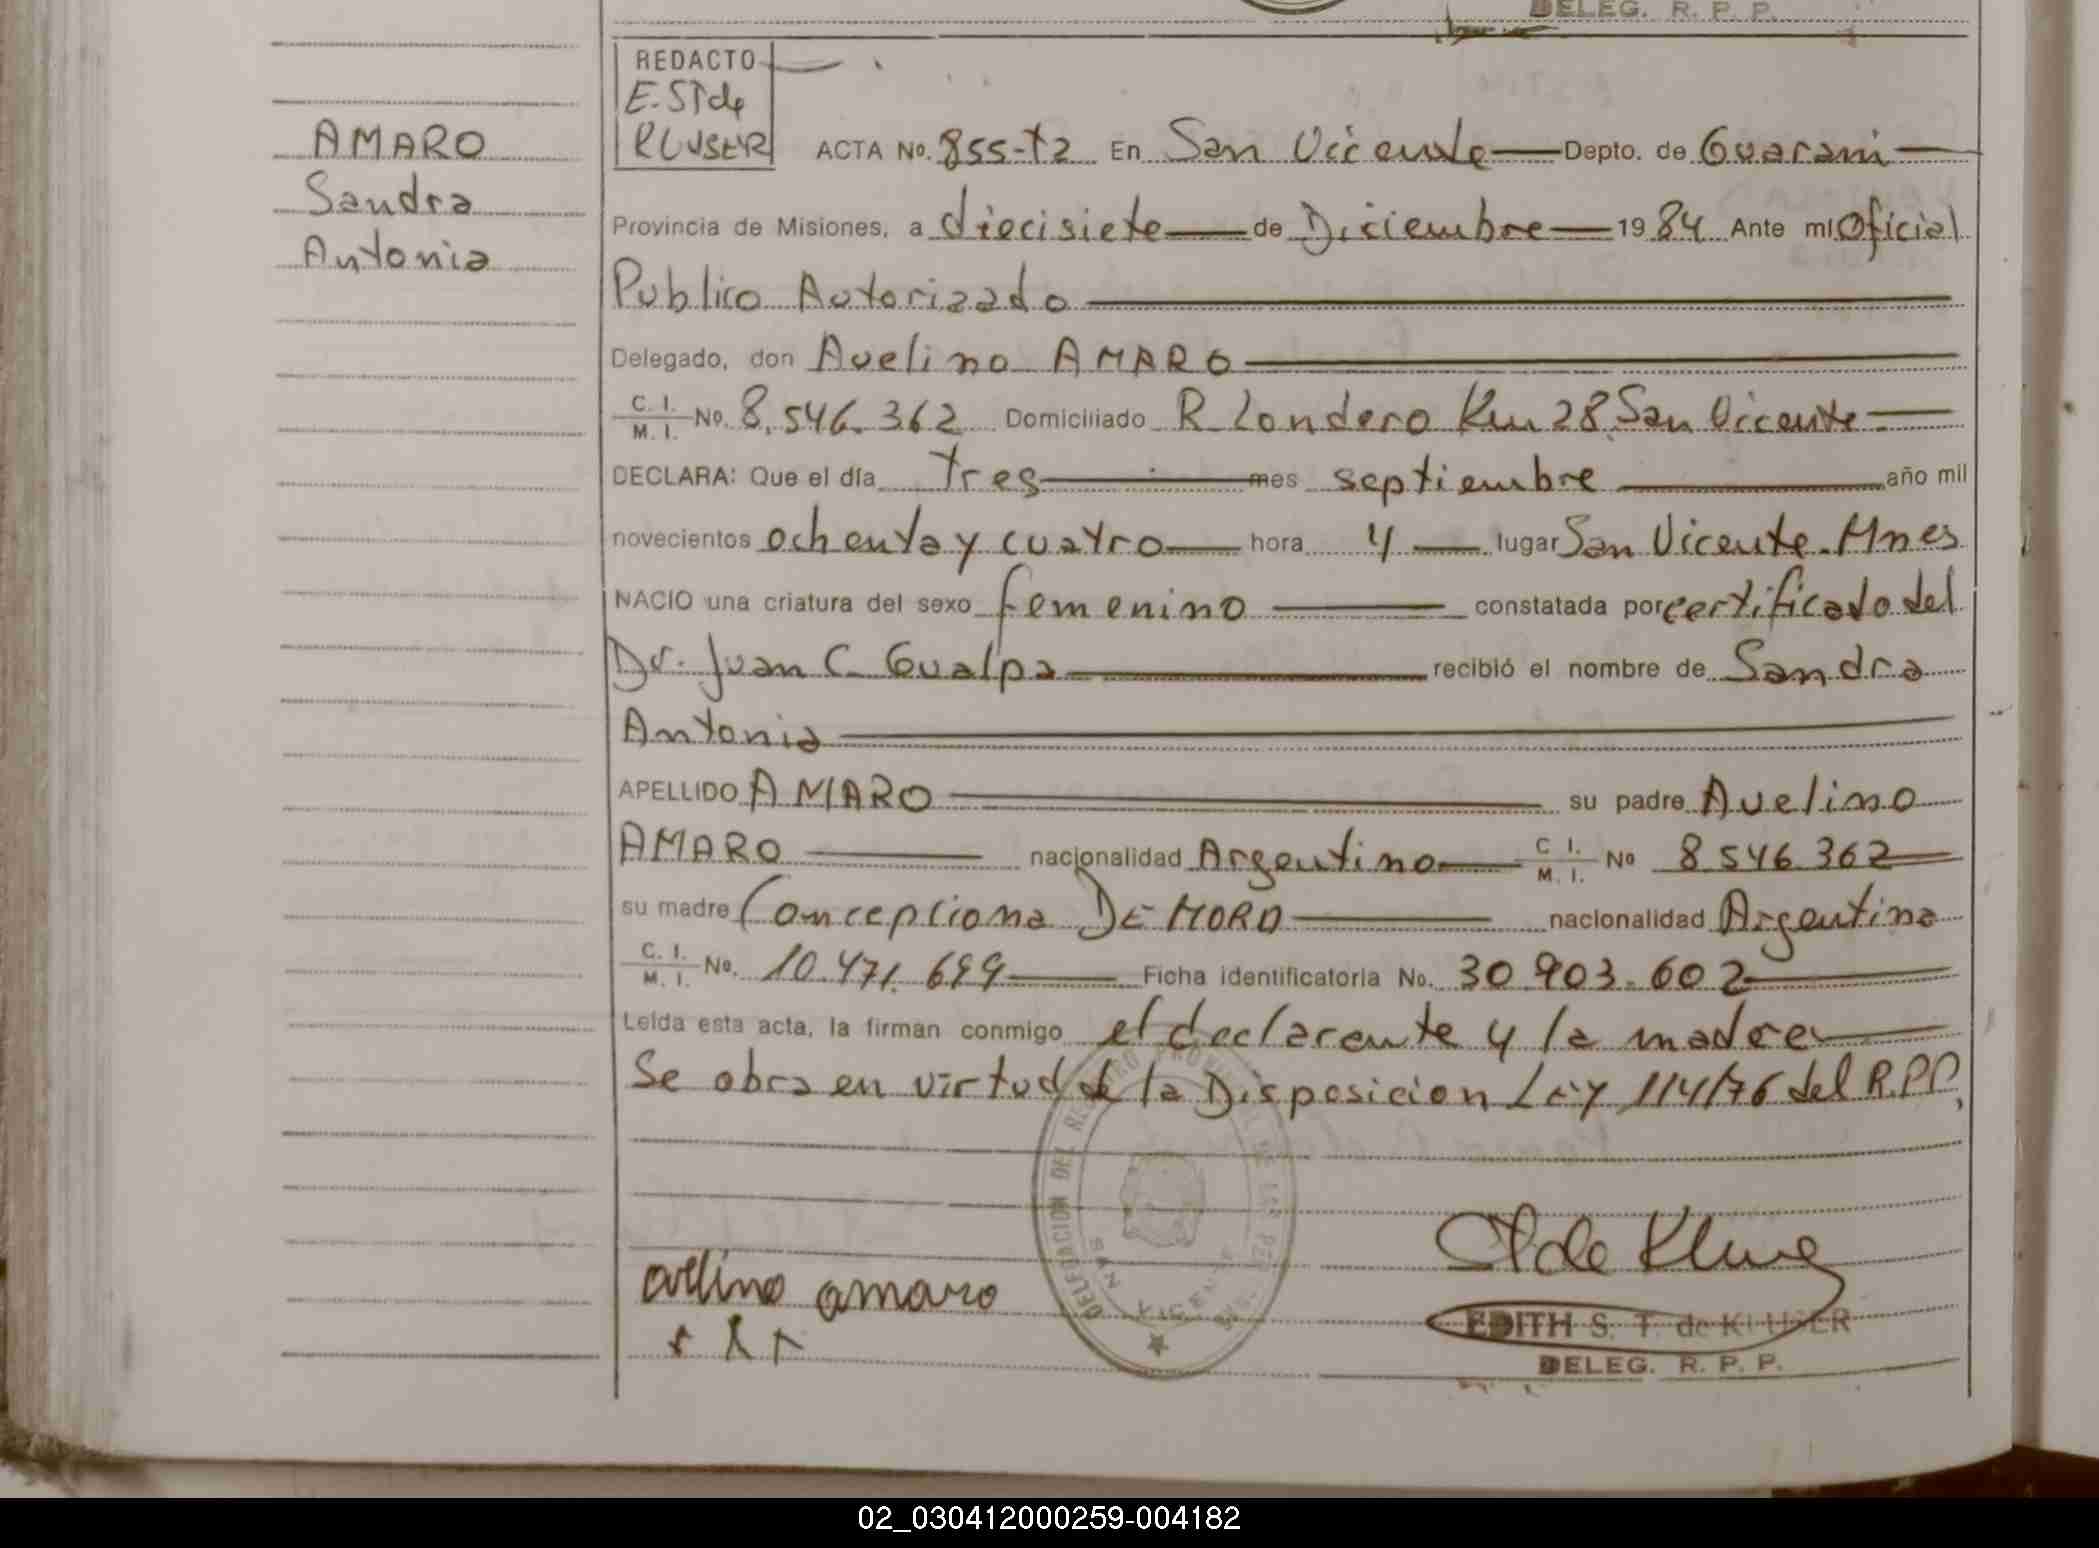 DELEG. R. P. P.
REDACTO
E. ST de
KLUSER
AMARO
Sandra
Antonia
ACTA No. 855-T2 En San Vicente Depto. de Guarani
Provincia de Misiones, a diecisiete de Diciembre 1984 Ante mí Oficial
Publico Autorizado
Delegado, don Avelino AMARO
C. I. M. I. No. 8.546.362 Domiciliado R Londero Km 28 San Vicente
DECLARA: Que el día tres mes septiembre año mil
novecientos ochenta y cuatro hora 4 lugar San Vicente. Mnes
NACIO una criatura del sexo femenino constatada por certificado del
Dr. Juan C. Gualpa recibió el nombre de Sandra
Antonia
APELLIDO AMARO su padre Avelino
AMARO nacionalidad Argentino C. I. M. I. No 8.546.362
su madre Concepciona DE MORO nacionalidad Argentina
C. I. M. I. No. 10.471.699 Ficha identificatoria No. 30.903.602
Leída esta acta, la firman conmigo el declarante y la madre
Se obra en virtud de la Disposicion Ley 114/76 del R.P.P,
DELEGACION DEL REGISTRO PROVINCIAL DE LAS PERSONAS
SAN VICENTE
avelino amaro
EDITH S. T. de KLUSER
DELEG. R. P. P.
02_030412000259-004182